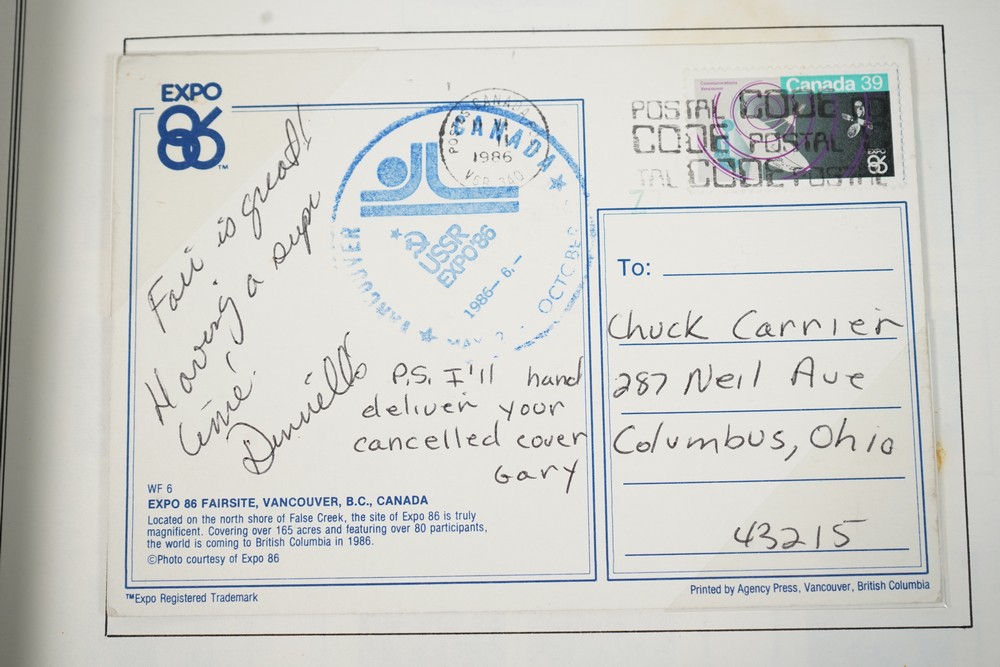 EXPO
86
TM
Fair is great!
Having a supr
time!
P.S. I'll hand
deliver your
cancelled cover
Gary
WF 6
EXPO 86 FAIRSITE, VANCOUVER, B.C., CANADA
Located on the north shore of False Creek, the site of Expo 86 is truly
magnificent. Covering over 165 acres and featuring over 80 participants,
the world is coming to British Columbia in 1986.
©Photo courtesy of Expo 86
™Expo Registered Trademark
CANADA
1986
CANADA
VANCOUVER
USSR
EXPO'86
1986-6,-
Canada 39
EXPO
86
POSTAL CODE
CODE POSTAL
CODE POSTAL
To:
Chuck Carrier
287 Neil Ave
Columbus, Ohio
43215
Printed by Agency Press, Vancouver, British Columbia